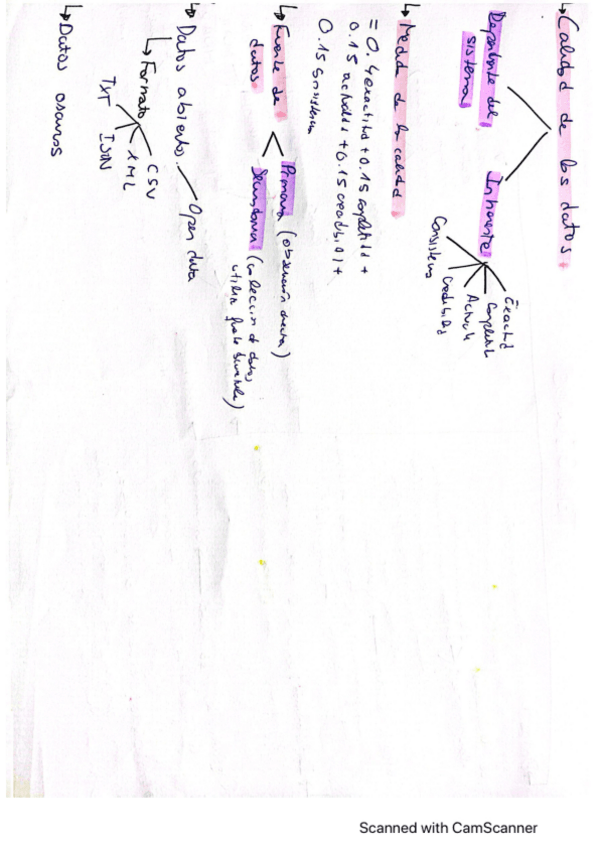 ↳ Calidad de los datos
Dependiente del
sistema
Inherente
Exactitud
Completitud
Actuali
Credibilid
Consistencia
↳ Medida de la calidad
= 0.4 exactitud + 0.15 completitud +
0.15 actualidad + 0.15 credibilidad +
0.15 consistencia
↳ Fuente de
datos
Primaria (observación directa)
Secundaria (colección de datos
utiliza fuente
↳ Datos abiertos
Open data
↳ Formato
CSV
XML
JSON
TXT
↳ Datos oscuros
Scanned with CamScanner